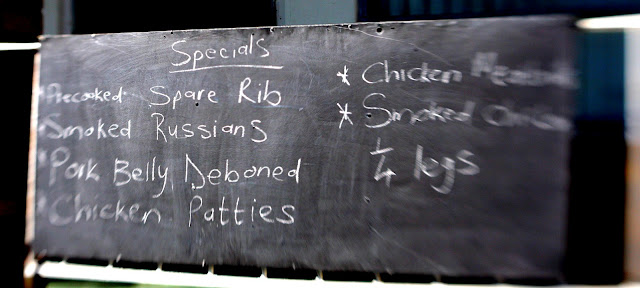 Specials
* Precooked Spare Rib
* Smoked Russians
* Pork Belly Deboned
* Chicken Patties
* Chicken
* Smoked
1/4 legs